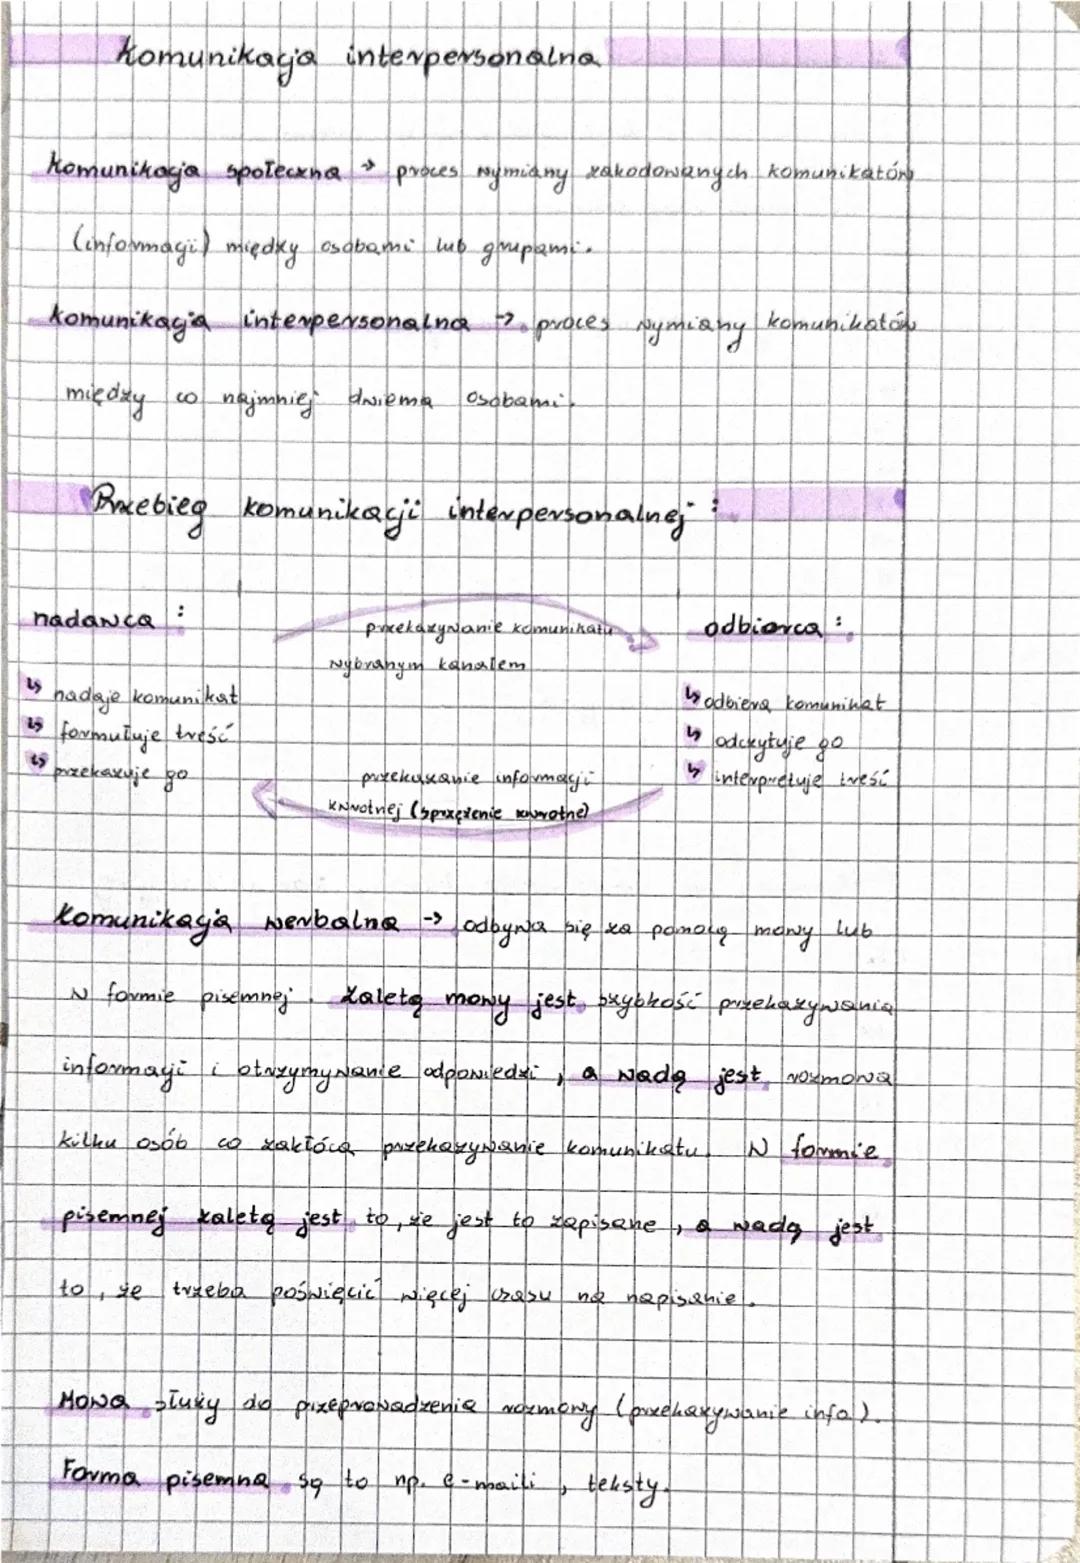 Komunikacja interpersonalna
Komunikacja społeczna → proces wymiany zakodowanych komunikatów
(informacji) między osobami lub grupami.
Komunikacja interpersonalna → proces wymiany komunikatów
między co najmniej dwiema osobami.
Przebieg komunikacji interpersonalnej :
nadawca :
↳ nadaje komunikat
↳ formułuje treść
↳ przekazuje go
przekazywanie komunikatu
wybranym kanałem
odbiorca :
↳ odbiera komunikat
↳ odczytuje go
↳ interpretuje treść
przekazanie informacji
zwrotnej (sprzężenie zwrotne)
Komunikacja werbalna → odbywa się za pomocą mowy lub
w formie pisemnej. Zaletą mowy jest szybkość przekazywania
informacji i otrzymywanie odpowiedzi, a wadą jest rozmowa
kilku osób co zakłóca przekazywanie komunikatu. W formie
pisemnej zaletą jest to, że jest to zapisane, a wadą jest
to, że trzeba poświęcić więcej czasu na napisanie.
Mowa służy do przeprowadzenia rozmowy (przekazywanie info).
Forma pisemna są to np. e-maili, teksty.